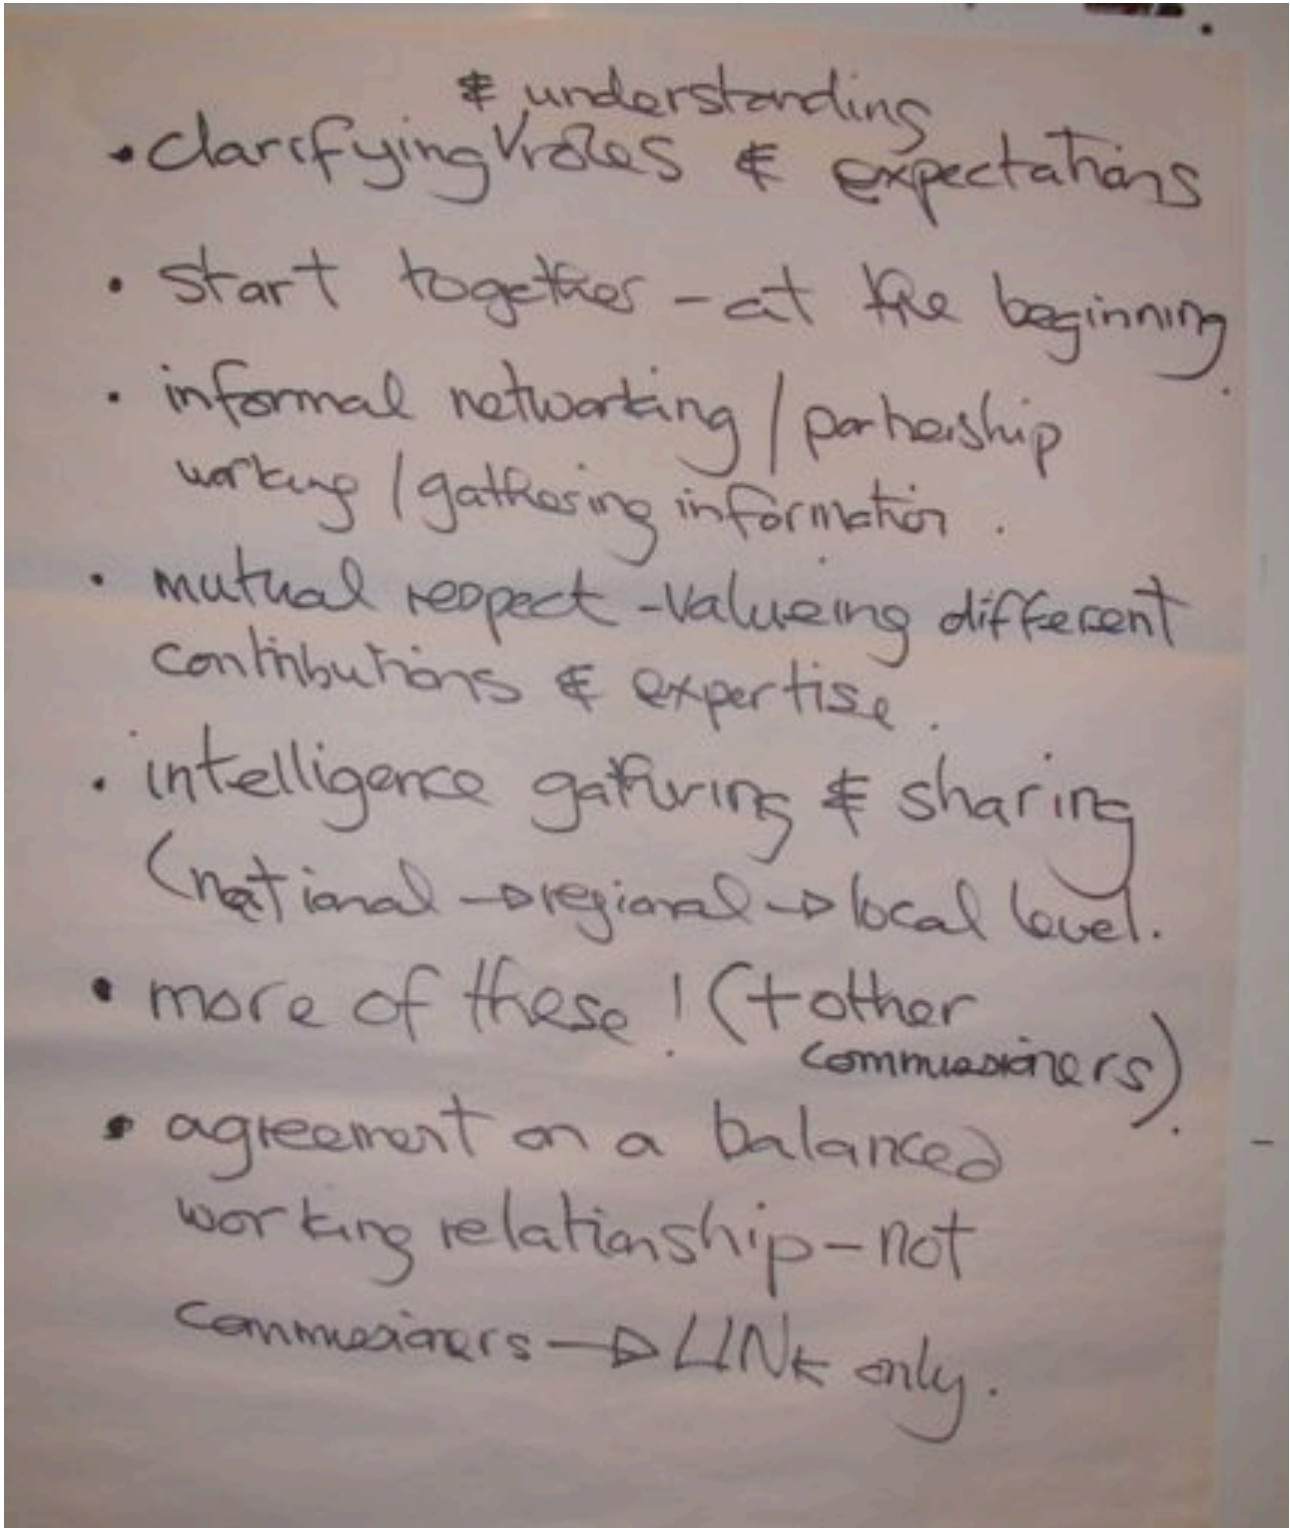 & understanding
• clarifying√roles & expectations
• start together - at the beginning.
• informal networking / partnership
working / gathering information.
• mutual respect - valueing different
contributions & expertise.
• intelligence gathering & sharing
(national → regional → local level.
• more of these! (+ other
commissioners).
• agreement on a balanced
working relationship - not
commissioners → LINk only.